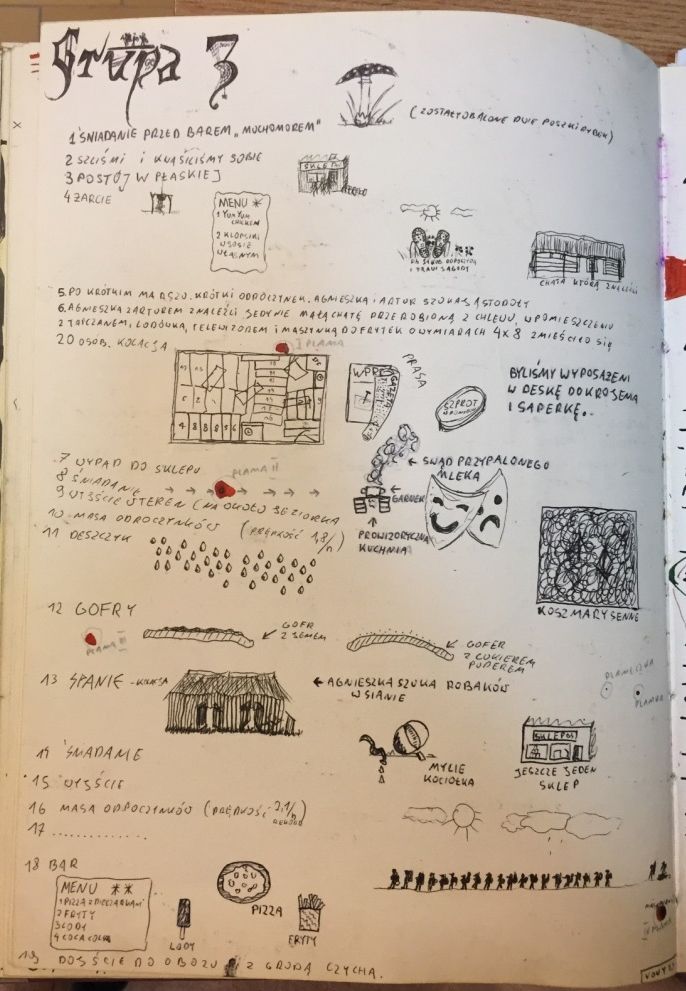 Grupa 3
1 ŚNIADANIE PRZED BAREM „MUCHOMOREM"
(ZOSTAŁY OBALONE DWIE PUSZKI RYBEK)
2 SZLIŚMI I KWAŚCILIŚMY SOBIE
3 POSTÓJ W PŁASKIEJ
SKLEP
4 ŻARCIE
MENU *
1 YUM YUM CHICKEN
2 KLOPSIKI
W SOSIE
WŁASNYM
I TRAWI JAGODY
CHATA KTÓRĄ ZNALEŹLI
5. PO KRÓTKIM MARSZU. KRÓTKI ODPOCZYNEK. AGNIESZKA I ARTUR SZUKAJĄ STODOŁY
6. AGNIESZKA Z ARTUREM ZNALEŹLI JEDYNIE MAŁĄ CHATĘ PRZEROBIONĄ Z CHLEWU, W POMIESZCZENIU
Z TAPCZANEM, LODÓWKĄ, TELEWIZOREM I MASZYNKĄ DO FRYTEK O WYMIARACH 4X8 ZMIEŚCIŁO SIĘ
20 OSÓB. KOLACJA
I PLAMA
PRASA
WPR
GAZETA
SZPROT
W POMIDOR
BYLIŚMY WYPOSAŻENI
W DESKĘ DO KROJENIA
I SAPERKĘ..
7 WYPAD DO SKLEPU
PLAMA II
8 ŚNIADANIE
← SWĄD PRZYPALONEGO
MLEKA
9 WYJŚCIE W TEREN (NA OKOŁO JEZIORKA
← GARNEK
10 MASA ODPOCZYNKÓW (PRĘDKOŚĆ 1,8/h)
PROWIZORYCZNA
KUCHNIA
11 DESZCZYK
KOSZMARY SENNE
12 GOFRY
PLAMA III
← GOFR
Z SEREM
← GOFER
Z CUKIEREM
PUDREM
13 SPANIE - KOLACJA
← AGNIESZKA SZUKA ROBAKÓW
W SIANIE
14 ŚNIADANIE
MYCIE
KOCIOŁKA
SKLEP
JESZCZE JEDEN
SKLEP
15 WYJŚCIE
16 MASA ODPOCZYNKÓW (PRĘDKOŚĆ 2,1/h)
REKORD
17 ..............
18 BAR
MENU **
1 PIZZA Z PIECZARKAMI
2 FRYTY
3 LODY
4 COCA COLA
LODY
PIZZA
FRYTY
19 DOJŚCIE DO OBOZU I Z GRODĄ CZYCHA.